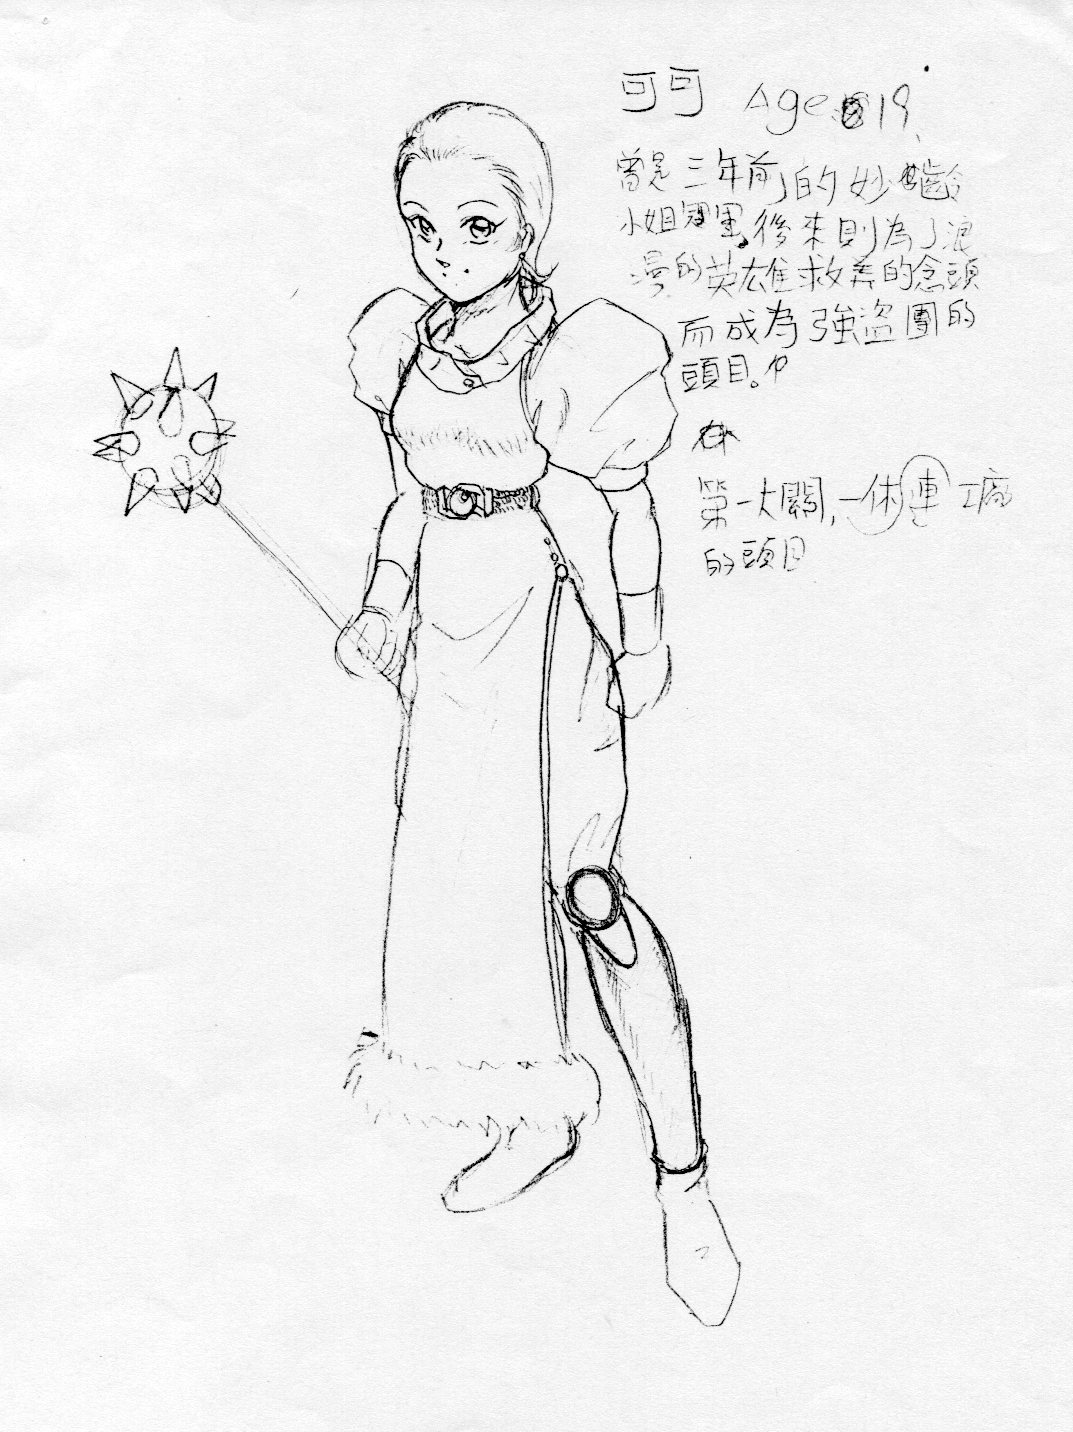 可可 Age 19
曾是三年前的妙齡
小姐冠軍,後來則為了浪
漫的英雄救美的念頭
而成為強盜團的
頭目。
第一大關,一休連工廠
的頭目